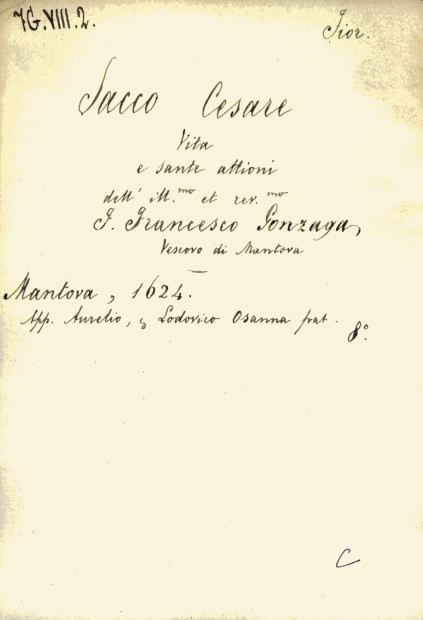 7G.VIII.2.
Fior.
Sacco Cesare
Vita
e sante attioni
dell' ill.mo et rev.mo
F. Francesco Gonzaga,
Vescovo di Mantova
Mantova, 1624.
App. Aurelio, & Lodovico Osanna frat.
8°.
C